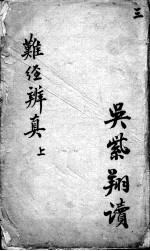 三
吳紫翔讀
難經辨真 上